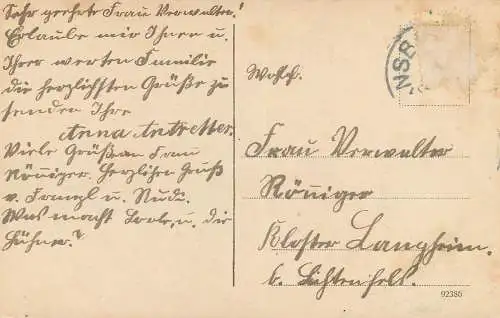 Sehr geehrte Frau Verwalter!
Erlaube mir Ihnen u.
Ihrer werten Familie
die herzlichsten Grüße zu
senden Ihre
Anna Antretter.
Viele Grüße an Frau
Röniger. Herzlichen Gruß
v. Franzl u. Rudi.
Was macht u. die
Hühner?
NSB
Wohlg.
Frau Verwalter
Röniger
Kloster Langheim.
b. Lichtenfels.
92386